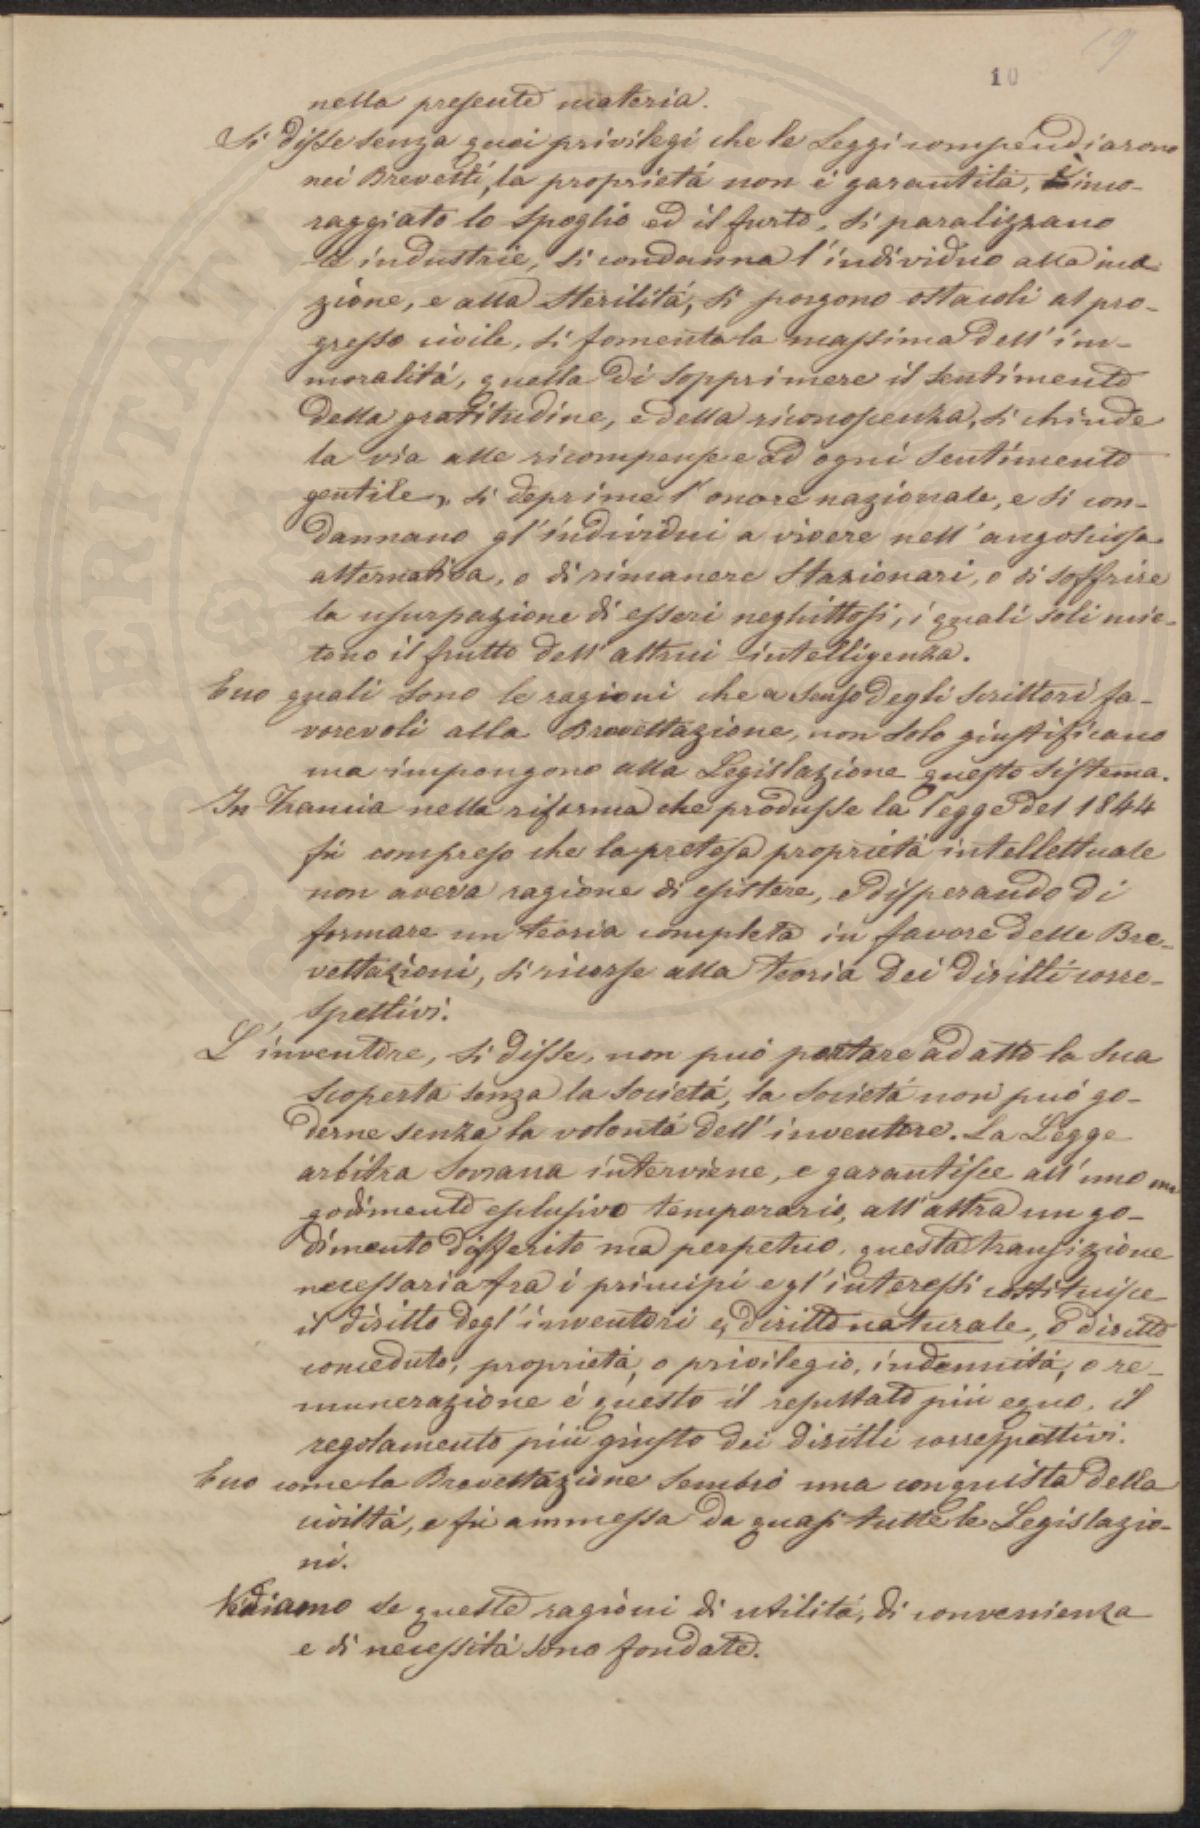 19
10
nella presente materia.
Si disse senza quei privilegi che le Leggi compendiarono
nei Brevetti, la proprietá non é garantita, é inco-
raggiato lo spoglio ed il furto, si paralizzano
le industrie, si condanna l'individuo alla ina-
zione, e alla sterilitá, si pongono ostacoli al pro-
gresso civile, si fomenta la massima dell'im-
moralitá, quella di sopprimere il sentimento
della gratitudine, e della riconoscenza, si chiude
la via alle ricompense e ad ogni sentimento
gentile, si deprime l'onore nazionale, e si con-
dannano gl'individui a vivere nell'angosciosa
alternativa, o di rimanere stazionari, o di soffrire
la usurpazione di esseri neghittosi, i quali soli mie-
tono il frutto dell'altrui intelligenza.
Ecco quali sono le ragioni che a senso degli scrittori fa-
vorevoli alla Brevettazione, non solo giustificano
ma impongono alla Legislazione questo sistema.
In Francia nella riforma che produsse la legge del 1844
fú compreso che la pretesa proprietá intellettuale
non aveva ragione di esistere, e disperando di
formare un teoria completa in favore delle Bre-
vettazioni, si ricorse alla teoria dei diritti corre-
spettivi.
L'inventore, si disse, non puó portare ad atto la sua
scoperta senza la societá, la societá non puó go-
derne senza la volontá dell'inventore. La Legge
arbitra sovrana interviene, e garantisce all'uno un
godimento esclusivo temporario, all'altra un go-
dimento differito ma perpetuo, questa transizione
necessaria fra i principi e gl'interessi costituisce
il diritto degl'inventori e, diritto naturale, o diritto
conceduto, proprietá, o privilegio, indennitá, o re-
munerazione é questo il resultato piú equo, il
regolamento piú giusto dei diritti correspettivi.
Ecco come la Brevettazione sembró una conquista della
civiltá, e fú ammessa da quasi tutte le Legislazio-
ni.
Vediamo se queste ragioni di utilitá, di convenienza
e di necessitá sono fondate.